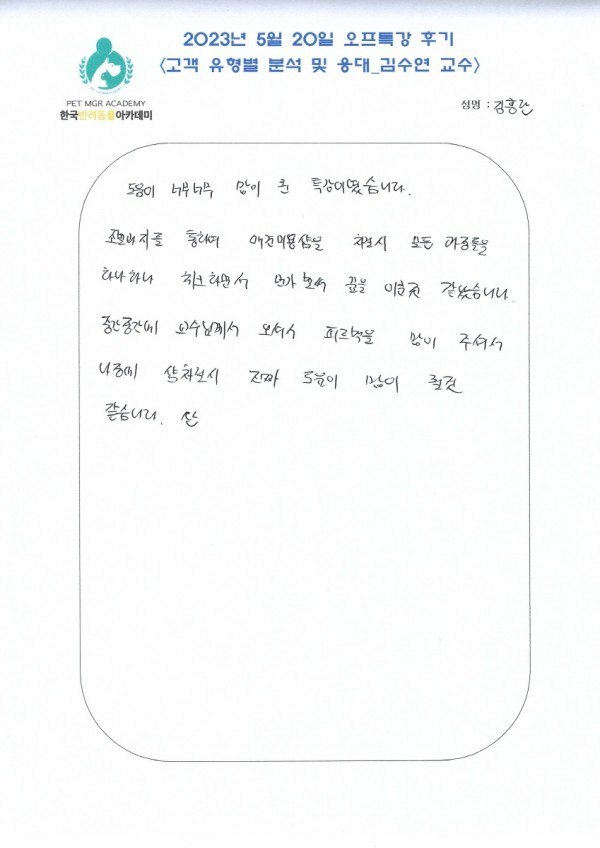 2023년 5월 20일 오프특강 후기
<고객 유형별 분석 및 응대_김수연 교수>
PET MGR ACADEMY
한국반려동물아카데미
성명 : 김흥란
도움이 너무너무 많이 된 특강이였습니다.
통하여 애견미용샵을 차릴시 모든 과정들을
하나하나 체크하면서 먼가 꿈을 이룬것 같았습니다.
중간중간에 교수님께서 오셔서 피드백을 많이 주셔서
나중에 샵차릴시 진짜 도움이 많이 될것
같습니다.